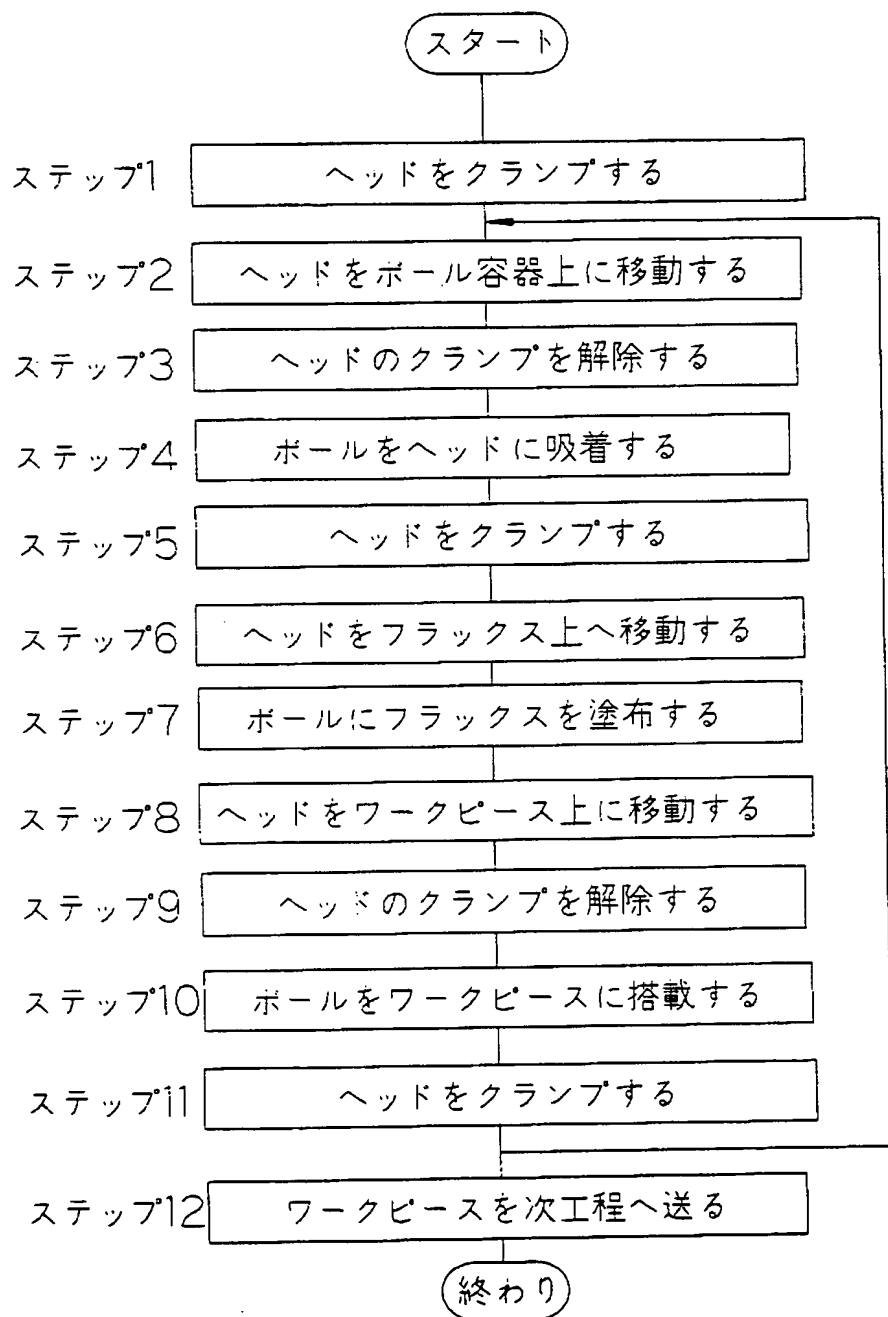 スタート
ステップ1 ヘッドをクランプする
ステップ2 ヘッドをボール容器上に移動する
ステップ3 ヘッドのクランプを解除する
ステップ4 ボールをヘッドに吸着する
ステップ5 ヘッドをクランプする
ステップ6 ヘッドをフラックス上へ移動する
ステップ7 ボールにフラックスを塗布する
ステップ8 ヘッドをワークピース上に移動する
ステップ9 ヘッドのクランプを解除する
ステップ10 ボールをワークピースに搭載する
ステップ11 ヘッドをクランプする
ステップ12 ワークピースを次工程へ送る
終わり